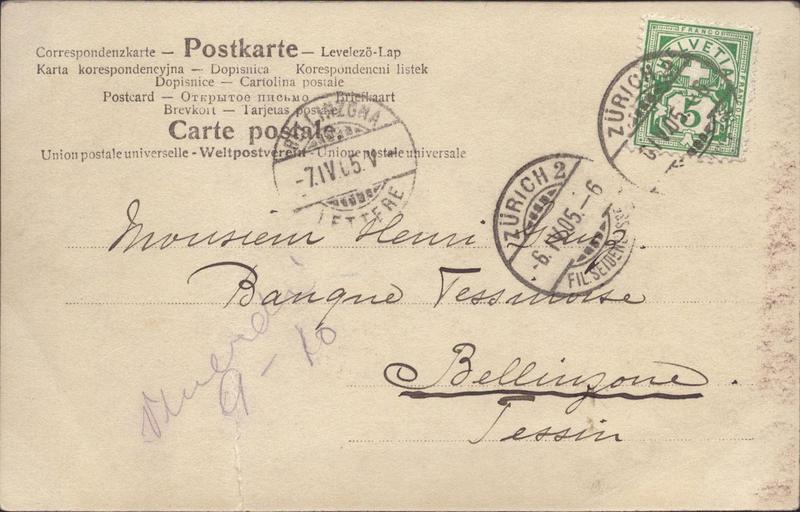 Correspondenzkarte — Postkarte — Levelező-Lap
Karta korespondencyjna — Dopisnica — Korespondencni listek
Dopisnice — Cartolina postale
Postcard — Открытое письмо — Briefkaart
Brevkort — Tarjetas postales
Carte postale.
Union postale universelle - Weltpostverein - Unione postale universale
FRANCO
HELVETIA
5
ZÜRICH
BELLINZONA
-7.IV.05.V
LETTERE
ZÜRICH 2
-6.IV.05.-6
FIL. SEIDENG
Monsieur Henri
Banque Tessinoise
Bellinzone.
Tessin
9-10